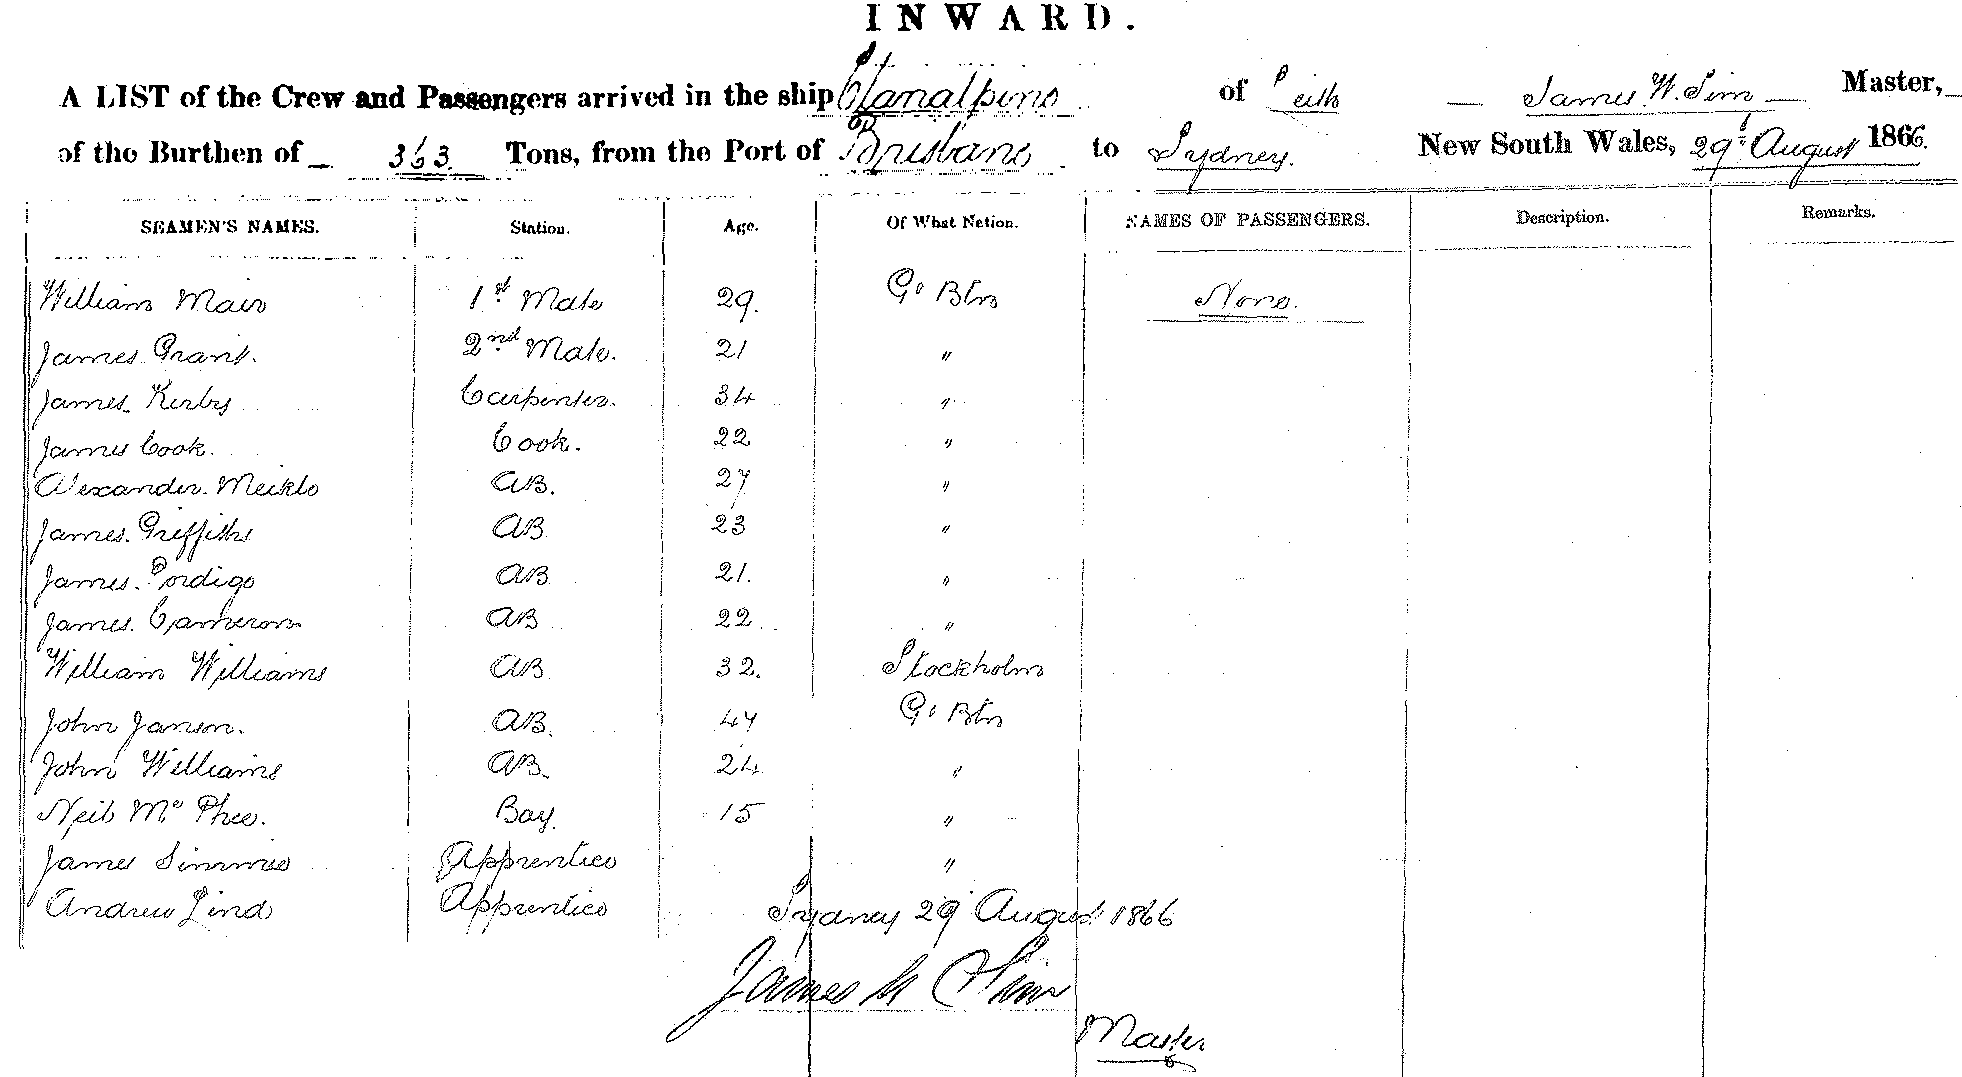 INWARD.
A LIST of the Crew and Passengers arrived in the ship Clanalpine of Leith — James W. Sim — Master,
of the Burthen of 363 Tons, from the Port of Brisbane to Sydney. New South Wales, 29th August 1866.
SEAMEN'S NAMES. Station. Age. Of What Nation. NAMES OF PASSENGERS. Description. Remarks.
William Mair 1st Mate 29. Gt Btn None.
James Grant. 2nd Mate. 21 "
James Kirby Carpenter. 34 "
James Cook. Cook. 22 "
Alexander Meikle AB. 27 "
James Griffiths AB 23 "
James AB 21. "
James Cameron AB 22 "
William Williams AB 32. Stockholm
John Janson. AB. 47 Gt Btn
John Williams AB. 24 "
Neil Mc Phee. Boy. 15 "
James Simmie Apprentice "
Andrew Lind Apprentice
Sydney 29 August 1866
James W Sim
Master